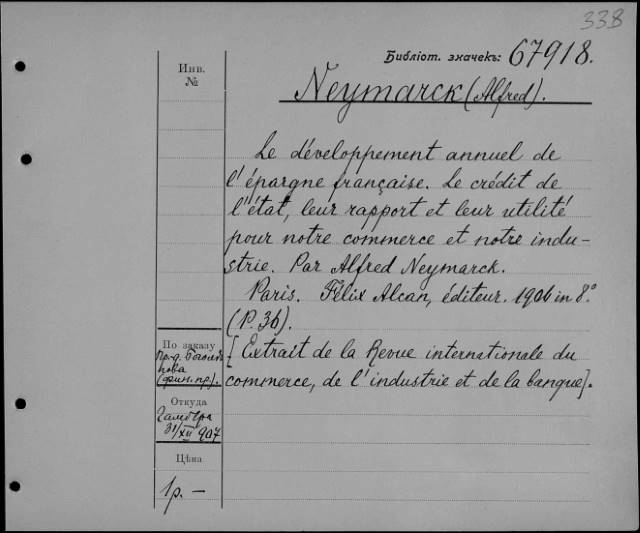 338
Библіот. значекъ: 67918.
Инв.
№
Neymarck (Alfred).
Le développement annuel de
l'épargne française. Le crédit de
l'état, leur rapport et leur utilité
pour notre commerce et notre indu-
strie. Par Alfred Neymarck.
Paris. Félix Alcan, éditeur. 1906 in 8°.
(P. 36).
[Extrait de la Revue internationale du
commerce, de l'industrie et de la banque].
По заказу
(фин. пр.).
Откуда
31/XII 907
Цѣна
1р. —